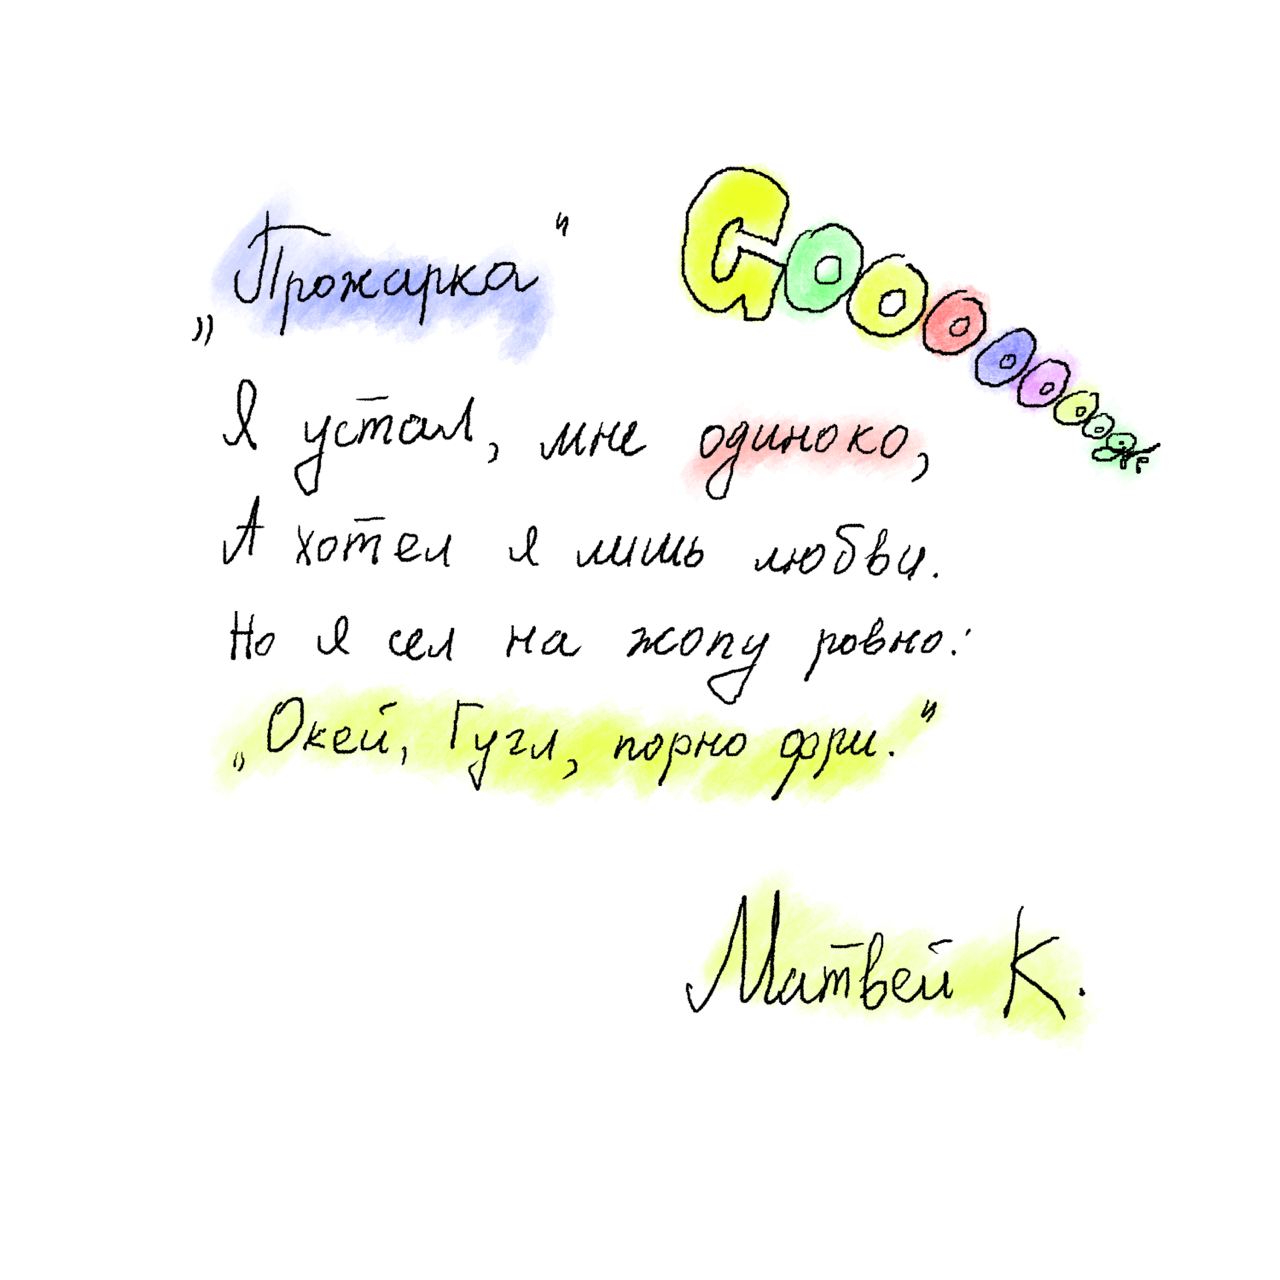 „Прожарка"
Gooooooo
Я устал, мне одиноко,
А хотел я лишь любви.
Но я сел на жопу ровно:
„Окей, Гугл, порно фри."
Матвей К.